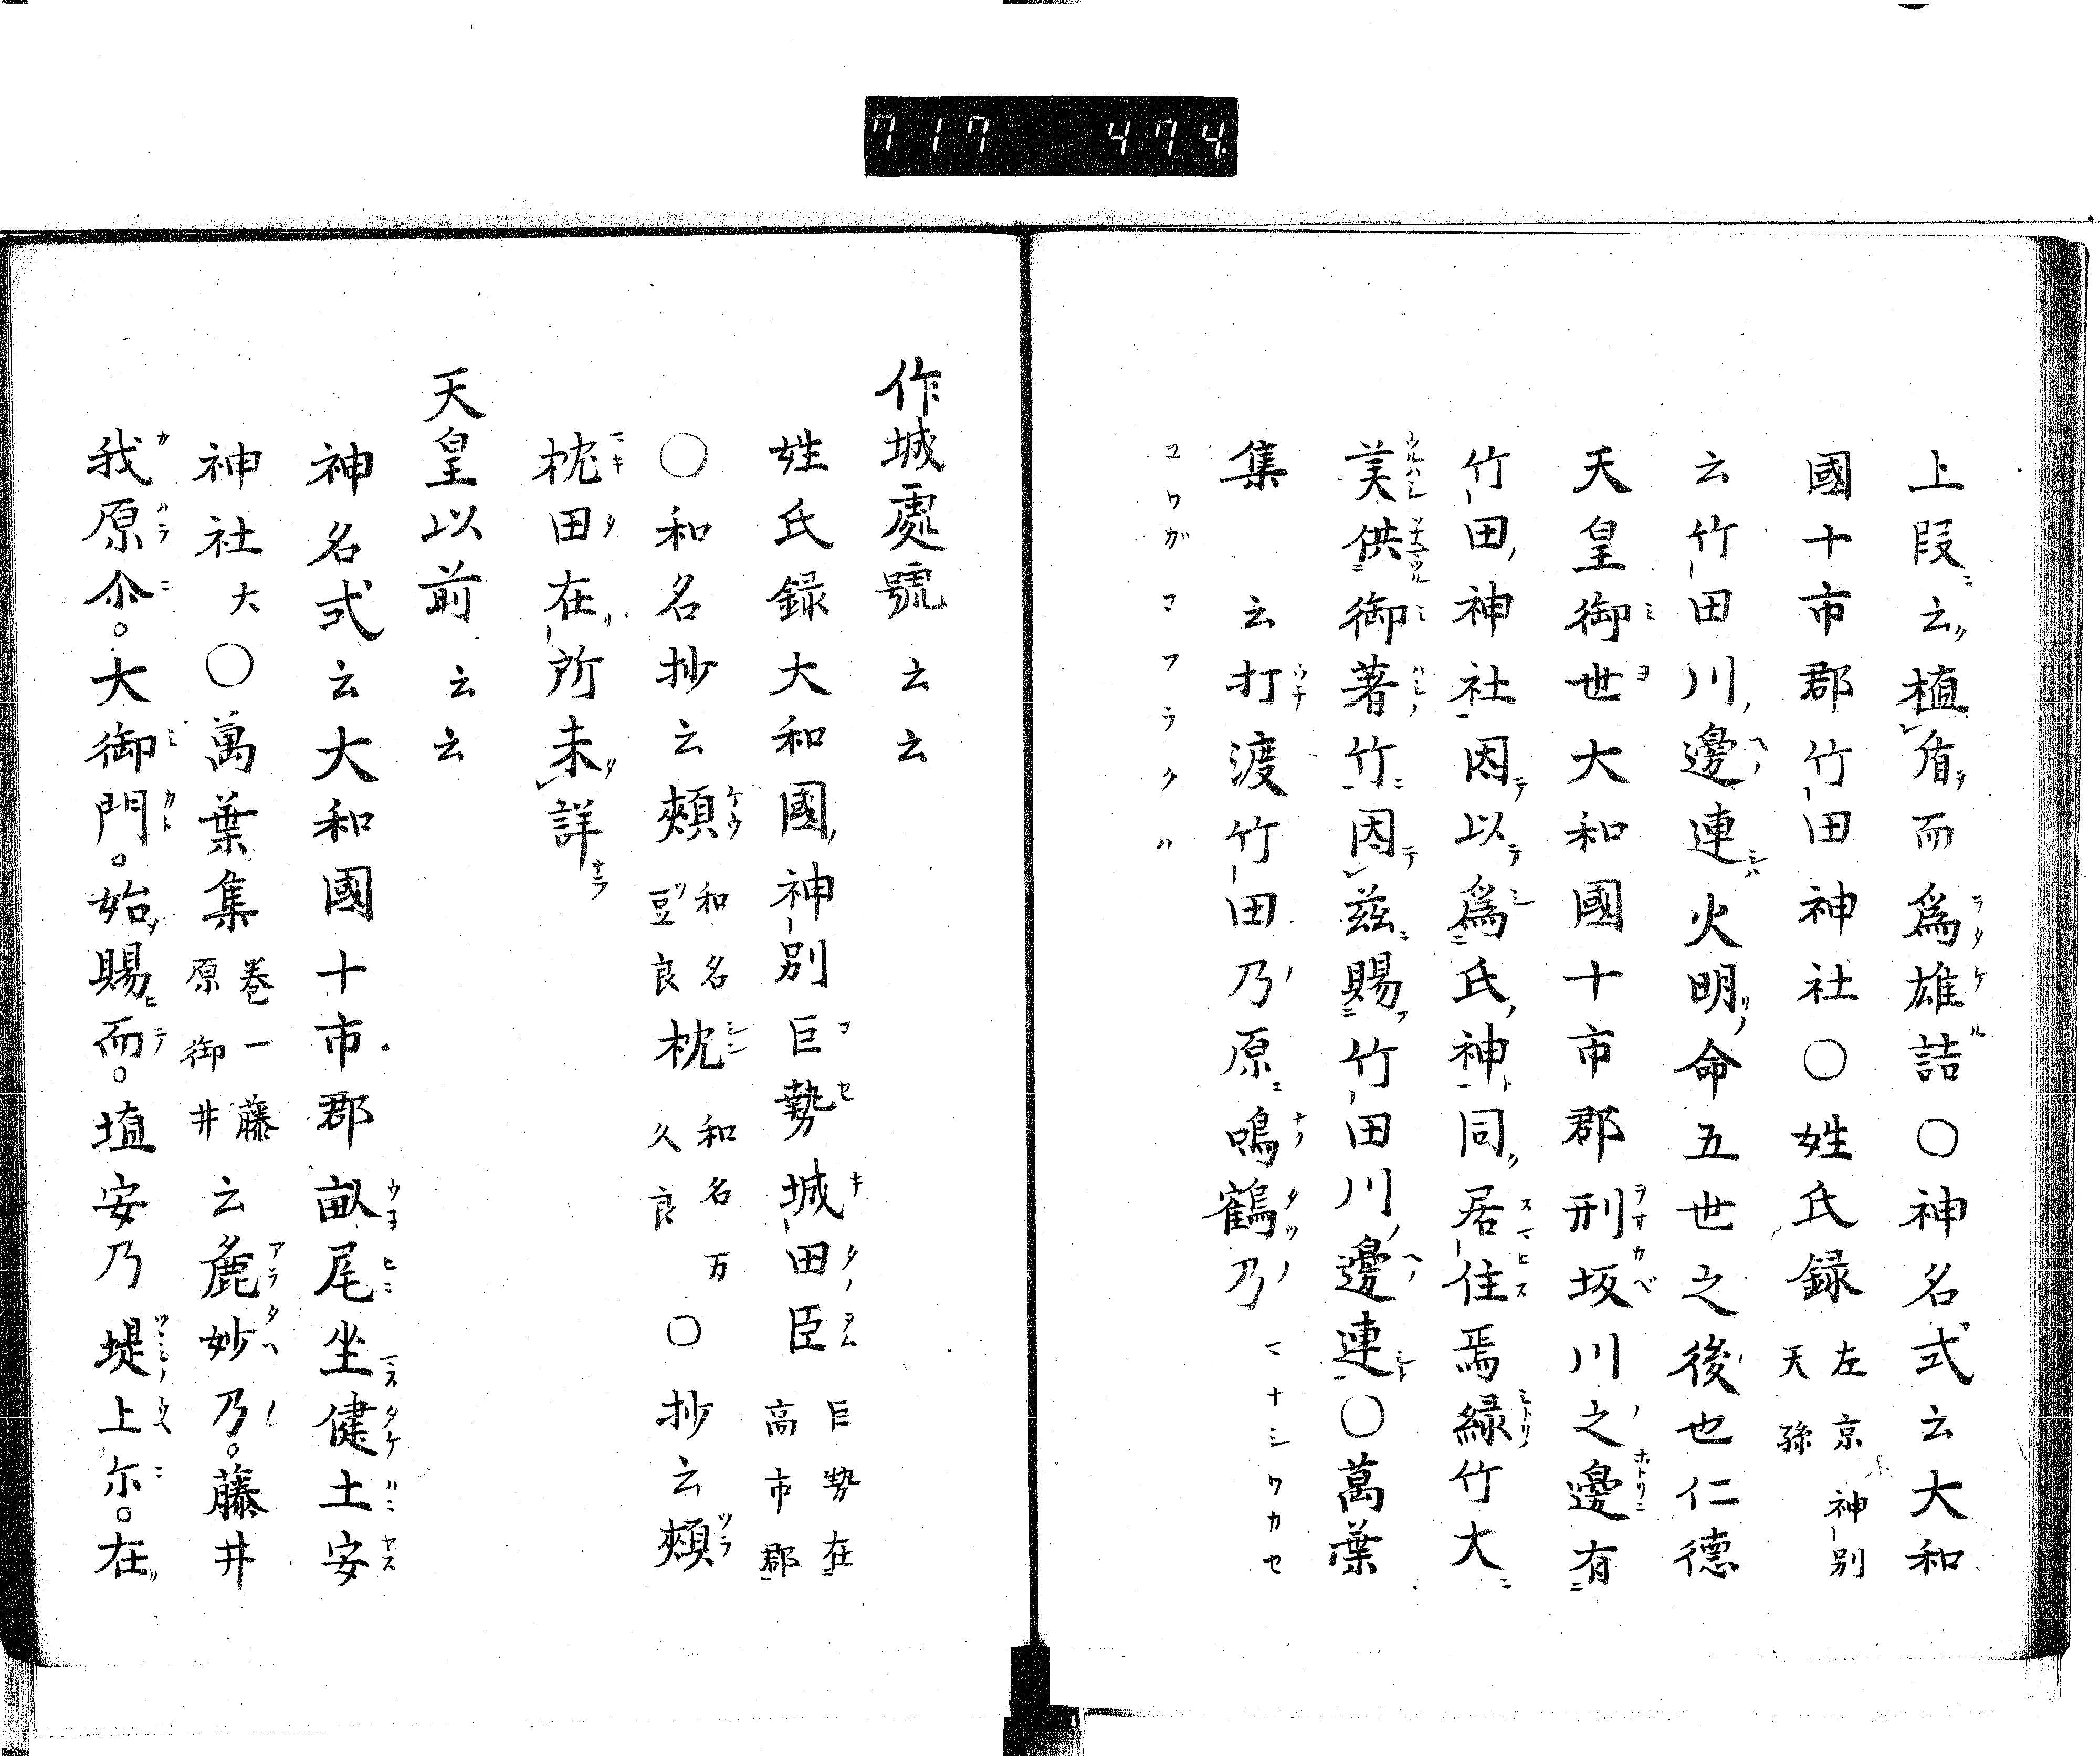 717 474
上段云植盾而爲雄詰〇神名式云大和
國十市郡竹田神社〇姓氏録左京神別天孫
云竹田川邊連火明命五世之後也仁德
天皇御世大和國十市郡刑坂川之邊有
竹田神社因以爲氏神同居住焉緑竹大
美供御著竹因茲賜竹田川邊連〇萬葉
集 云打渡竹田乃原鳴鶴乃マナシワカセ
コワガコフラクハ
作城處號云云
姓氏録大和國神別巨勢城田臣巨勢在高市郡
〇和名抄云頰和名豆良枕和名万久良〇抄云頰
枕田在所未詳
天皇以前云云
神名式云大和國十市郡畝尾坐健土安
神社大〇萬葉集巻一藤原御井云麁妙乃。藤井
我原尒。大御門。始賜而。埴安乃堤上尓。在